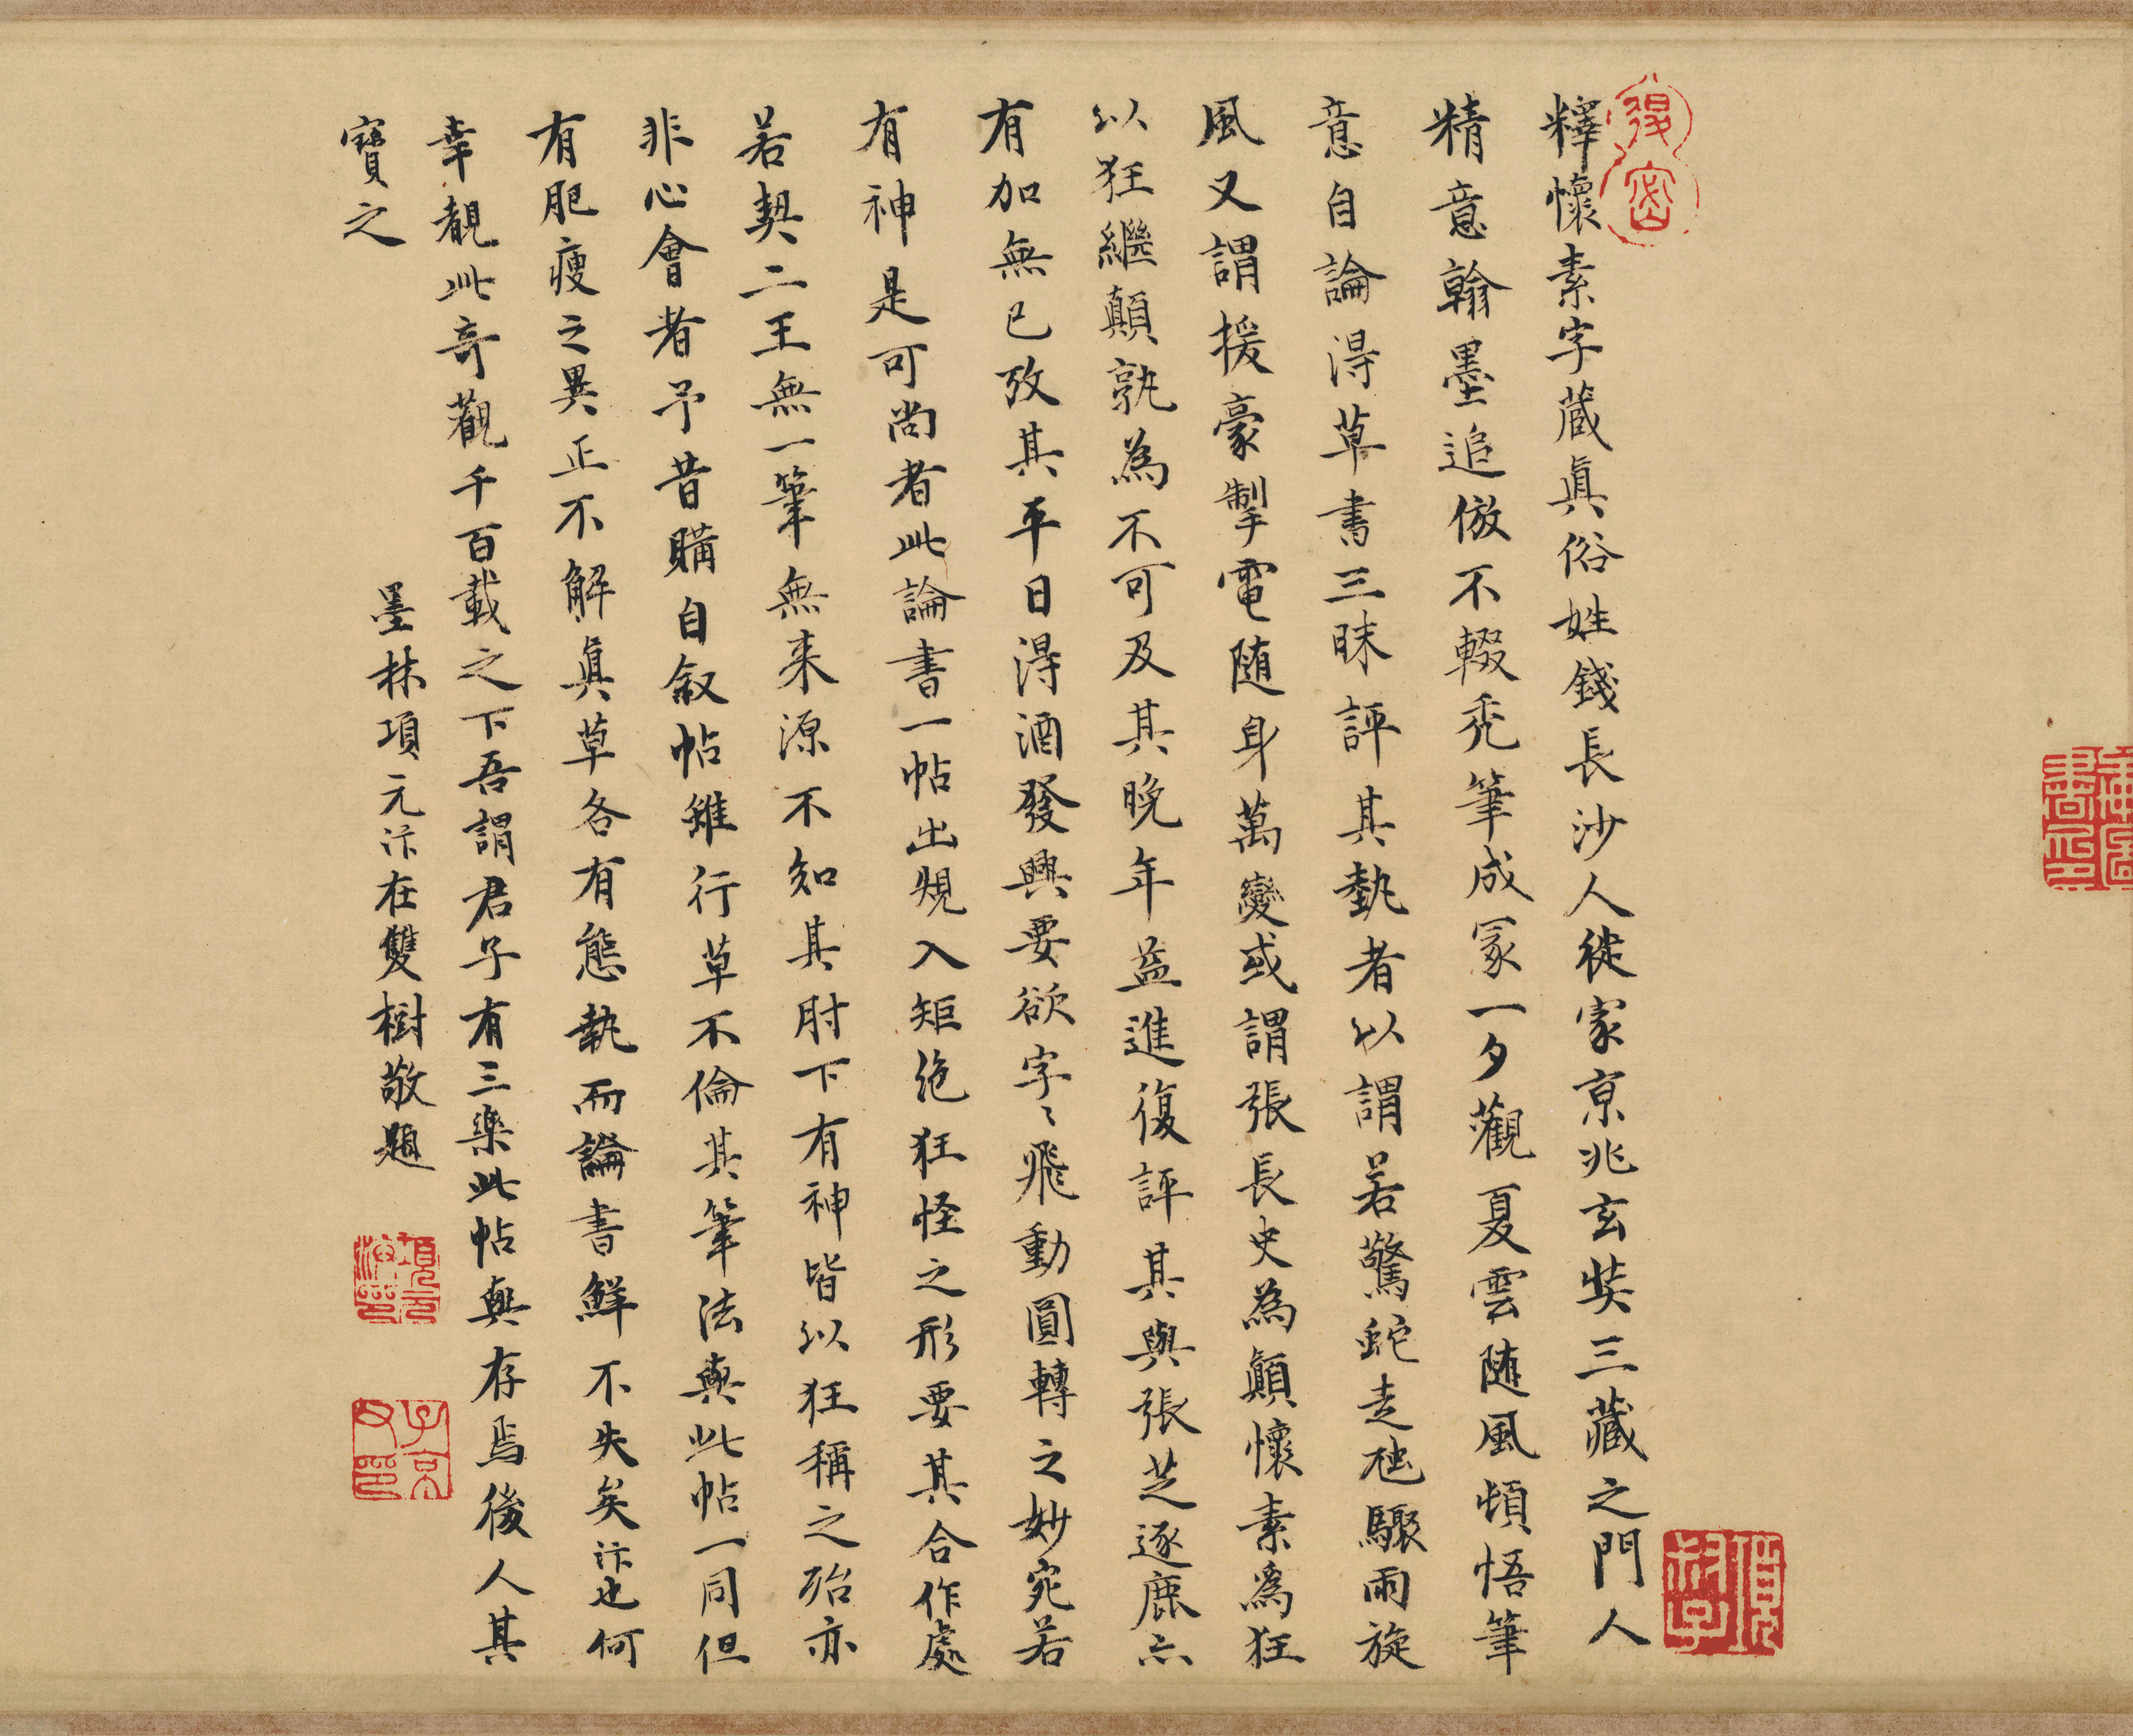 釋懷素字藏真俗姓錢長沙人徙家京兆玄奘三藏之門人
精意翰墨追倣不輟禿筆成冢一夕觀夏雲随風頓悟筆
意自論淂草書三昧評其埶者以謂若驚蛇走虺驟雨旋
風又謂援豪掣電随身萬變或謂張長史為顛懷素為狂
以狂繼顛孰為不可及其晚年益進復評其與張芝逐鹿亦
有加無已攷其平日淂酒發興要欲字〻飛動圓轉之妙宛若
有神是可尚者此論書一帖出規入矩絶狂怪之形要其合作處
若契二王無一筆無来源不知其肘下有神皆以狂稱之殆亦
非心會者予昔購自敘帖雖行草不倫其筆法與此帖一同但
有肥瘦之異正不解真草各有態執而論書鮮不失矣汴也何
幸覩此奇觀千百載之下吾謂君子有三樂此帖與存焉後人其
寶之
墨林項元汴在雙樹敬題
項元汴印
子京父印